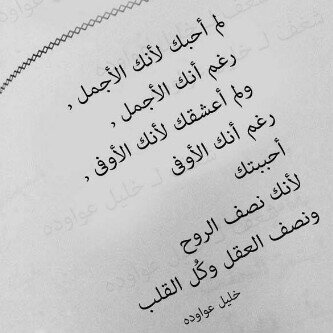 لم أحبك لأنك الأجمل ,
رغم أنك الأجمل ,
ولم أعشقك لأنك الأوفى ,
رغم أنك الأوفى
أحببتك
لأنك نصف الروح
ونصف العقل وكُل القلب
خليل عواوده